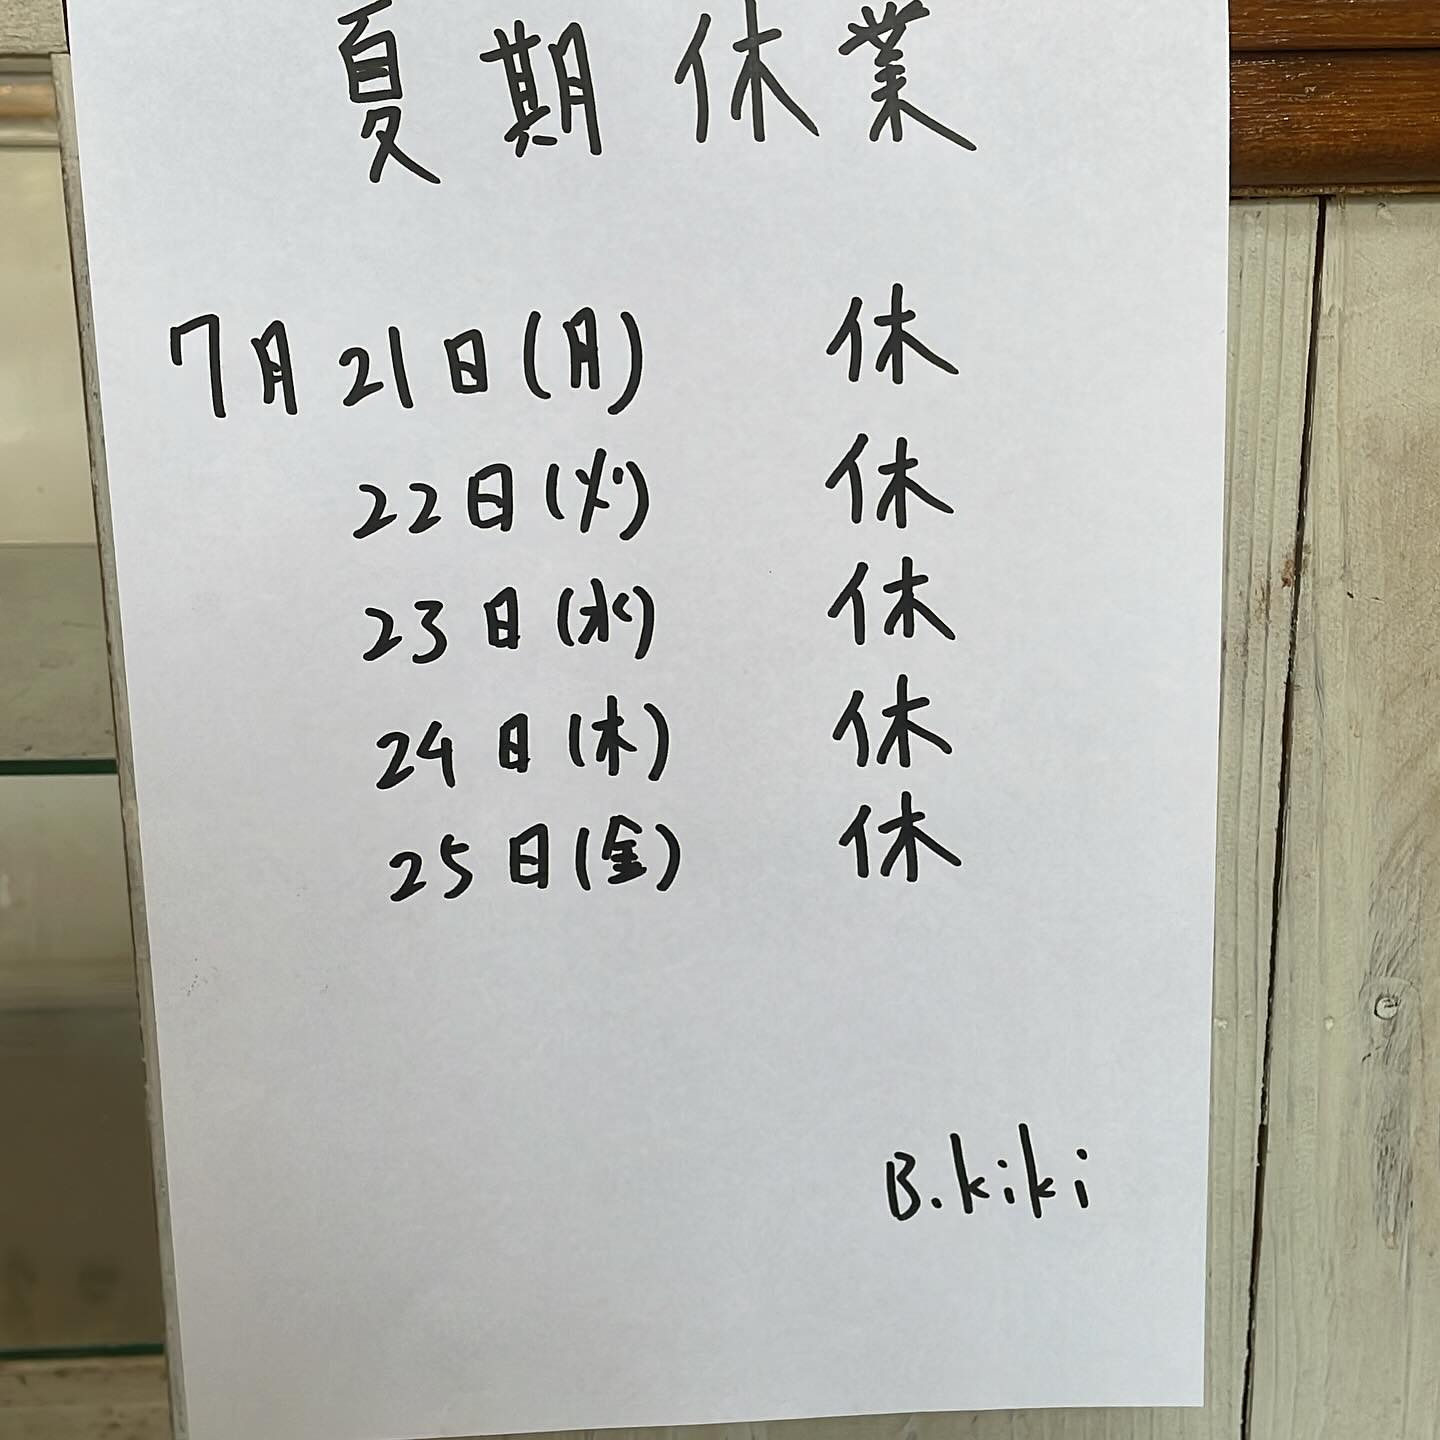 夏期休業
7月21日(月) 休
22日(火) 休
23日(水) 休
24日(木) 休
25日(金) 休
B.kiki